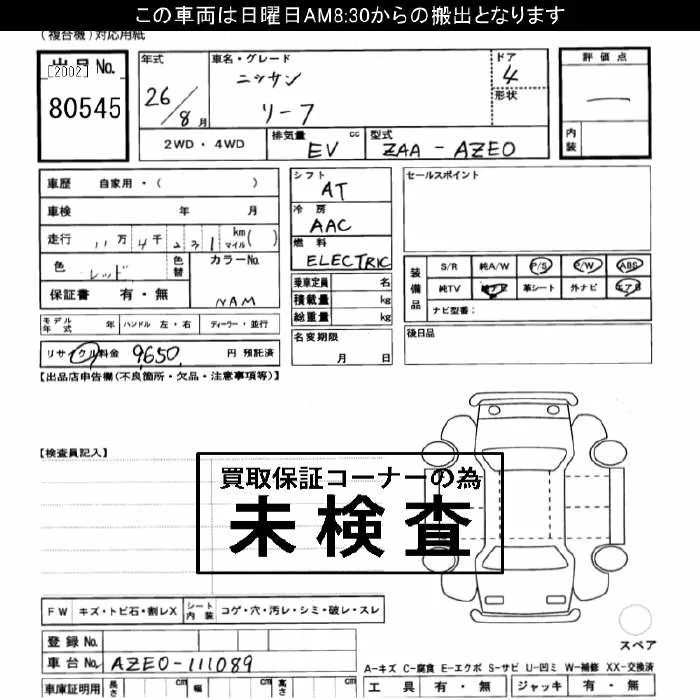 この車両は日曜日AM8:30からの搬出となります
(複合機)対応用紙
出品No. [2002] 年式 車名・グレード ドア 評価点
80545 26/8月 ニッサン リーフ 4 形状 内装
2WD・4WD 排気量 cc EV 型式 ZAA-AZE0
車歴 自家用・( ) シフト AT セールスポイント
車検 年 月 冷房 AAC
走行 11万4千231 km マイル( ) 燃料 ELECTRIC
色 レッド 色替 カラーNo. NAM
保証書 有・無
乗車定員 名
積載量 kg
総重量 kg
装備品 S/R 純A/W P/S P/W ABS
純TV 純ナビ 革シート 外ナビ エアB
ナビ型番:
モデル年式 年 ハンドル 左・右 ディーラー・並行 名変期限 月 日 後日品
リサイクル料金 9650 円 預託済
【出品店申告欄(不良箇所・欠品・注意事項等)】
【検査員記入】
買取保証コーナーの為
未検査
FW キズ・トビ石・割レX シート内装 コゲ・穴・汚レ・シミ・破レ・スレ
登録No.
車台No. AZE0-111089
スペア
A-キズ C-腐食 E-エクボ S-サビ U-凹ミ W-補修 XX-交換済
車庫証明用 長さ cm 幅 cm 高さ cm 工具 有・無 ジャッキ 有・無